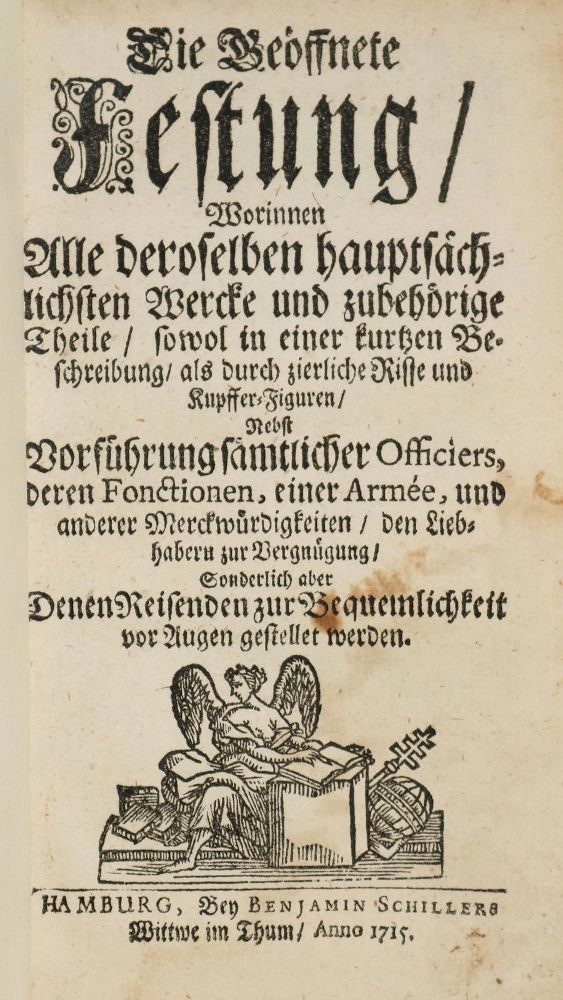 Die Geöffnete
Festung/
Worinnen
Alle deroselben hauptsäch-
lichsten Wercke und zubehörige
Theile/ sowol in einer kurtzen Be-
schreibung/ als durch zierliche Risse und
Kupffer-Figuren/
Nebst
Vorführung sämtlicher Officiers,
deren Fonctionen, einer Armée, und
anderer Merckwürdigkeiten/ den Lieb-
habern zur Vergnügung/
Sonderlich aber
Denen Reisenden zur Bequemlichkeit
vor Augen gestellet werden.
HAMBURG, Bey BENJAMIN SCHILLERS
Wittwe im Thum/ Anno 1715.